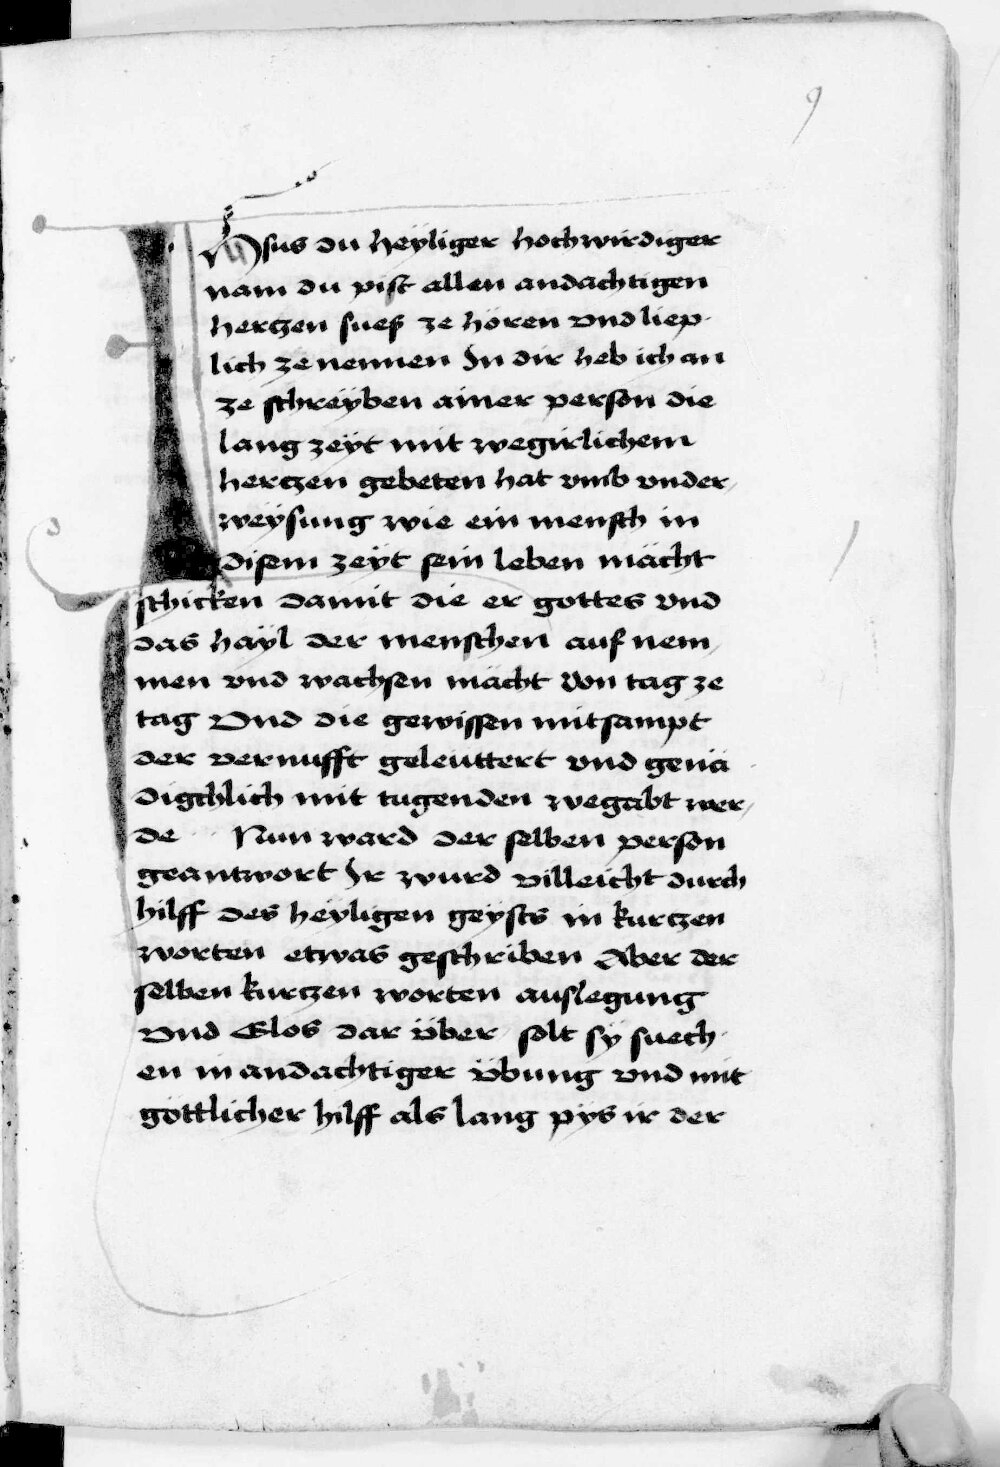 9
IHesus du heyliger hochwirdiger
nam du pist allen andachtigen
hertzen sueß ze hören vnd liep
lich ze nennen In dir heb ich an
ze schreyben ainer person die
lang zeyt mit wegirlichem
hertzen gebeten hat vmb vnder
weysung wie ein mensch in
disem zeyt sein leben mächt
schicken damit die er gottes vnd
das hayl der menschen auf nem
men vnd wachsen mächt Von tag ze
tag Vnd die gewissen mitsampt
der vernufft geleuttert vnd genä
digchlich mit tugenden wegabt wer
de Nun ward der selben person
geantwort Ir wurd villeicht durch
hilff des heyligen geysts in kurtzen
worten etwas geschriben Aber der
selben kurtzen worten auslegung
Vnd Glos dar über solt sy suech
en in andachtiger übung vnd mit
göttlicher hilff als lang pys ir der